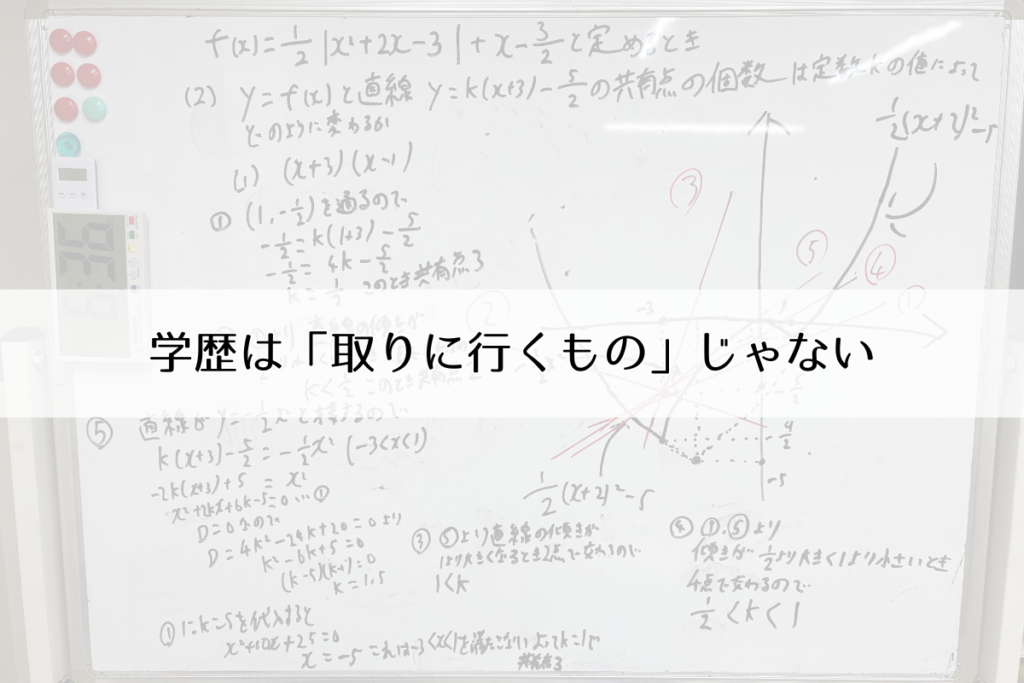 f(x)=1/2|x²+2x-3|+x-3/2と定めるとき
(2) y=f(x)と直線 y=k(x+3)-5/2の共有点の個数は定数kの値によって
どのように変わるか
1/2(x+2)²-5
(1) (x+3)(x-1)
① (1,-1/2)を通るので
-1/2=k(1+3)-5/2
-1/2=4k-5/2
k=1/2 このとき共有点3
③
⑤
④
①
②
-3
1
学歴は「取りに行くもの」じゃない
k<1/2 このとき共有点
⑤ 直線が y=-1/2x²と接するので
k(x+3)-5/2=-1/2x² (-3<x<1)
-2k(x+3)+5=x²
x²+2kx+6k-5=0…①
D=0なので
D=4k²-24k+20=0より
k²-6k+5=0
(k-5)(k-1)=0
k=1.5
①にk=5を代入すると
x²+10x+25=0
x=-5 これは-3<x<1を満たさないよってk=1で
共有点3
-5
1/2(x+2)²-5
③ ⑤より直線の傾きが
1より大きくなるとき2点で交わるので
1<k
④ ①.⑤より
傾きが1/2より大きく1より小さいとき
4点で交わるので
1/2<k<1